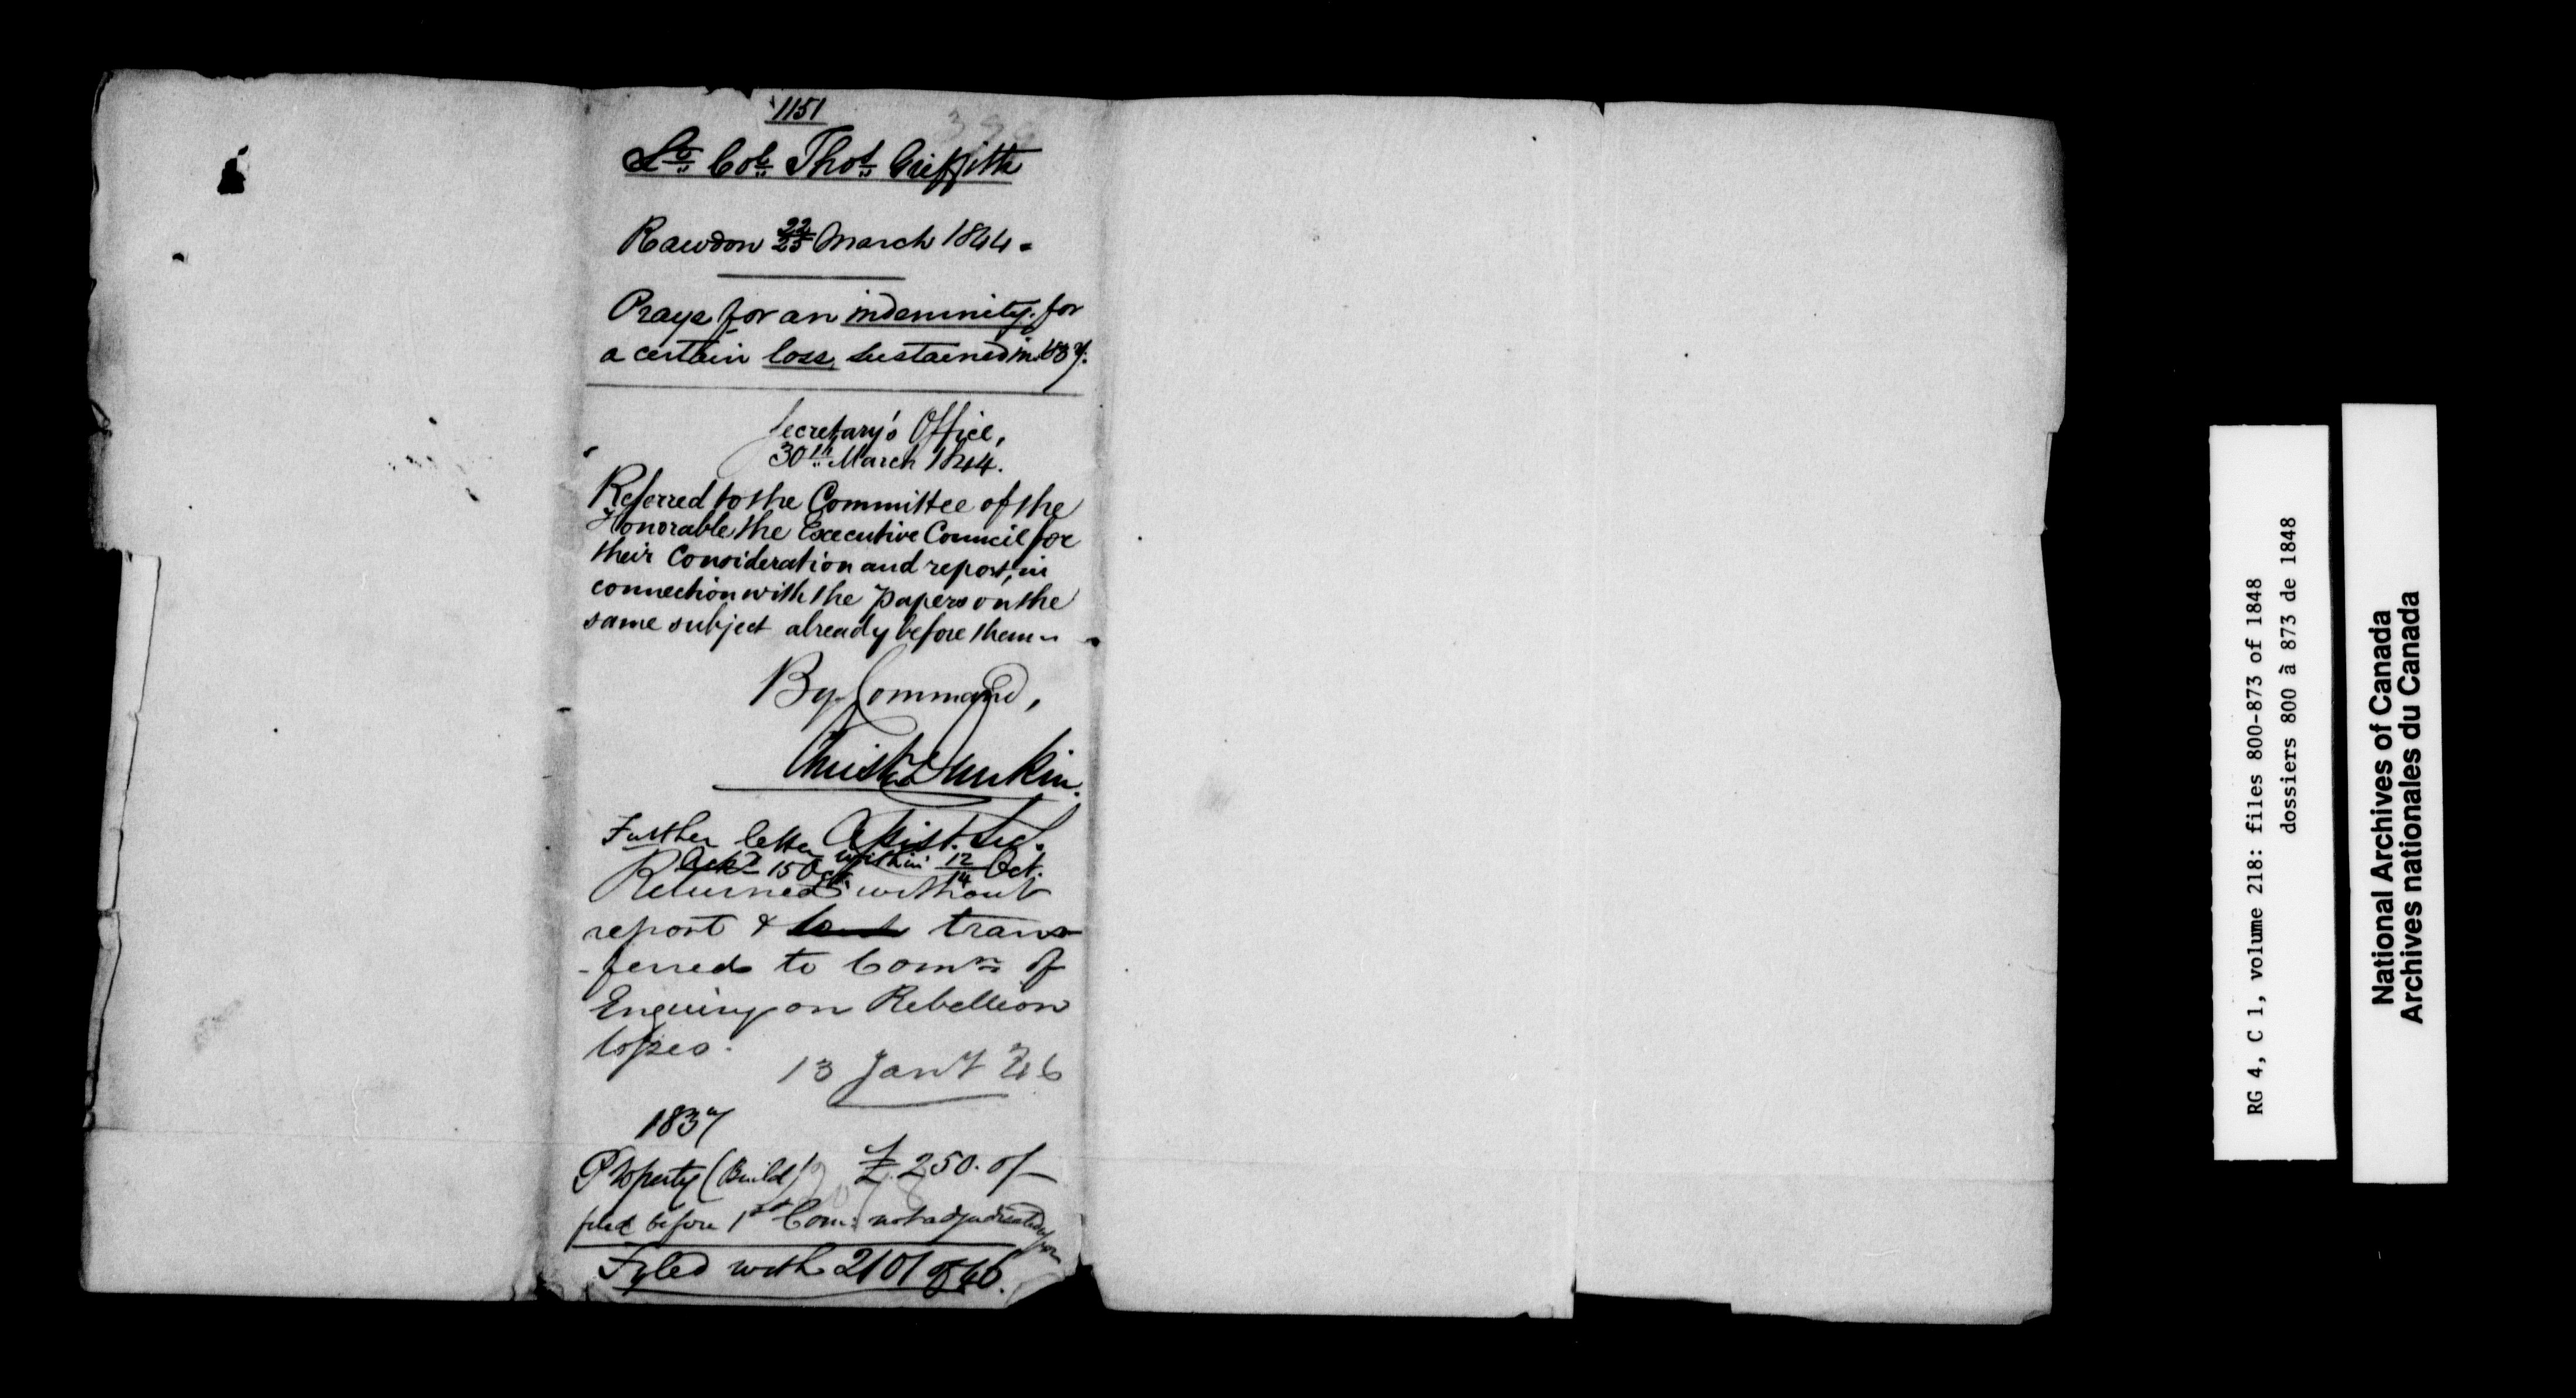 1151
Lt. Col. Thos. Griffith
Rawdon 22/25 March 1844.
Prays for an indemnity for
a certain loss, sustained in 1837.
Secretary's Office,
30th March 1844.
Referred to the Committee of the
Honorable the Executive Council for
their Consideration and report, in
connection with the Papers on the
same subject already before them.
By Command,
Christr Dunkin.
Asst. Sec.
Further letter within 12/14 Oct.
Ackd 15 Oct.
Returned without
report & trans
-ferred to Comrs of
Enquiry on Rebellion
losses.
13 Jany 46
1837
Property (Build) £250. of
filed before 1st Com: not adjudicated upon
Fyled with 2101 of 46.
RG 4, C 1, volume 218: files 800-873 of 1848
dossiers 800 à 873 de 1848
National Archives of Canada
Archives nationales du Canada